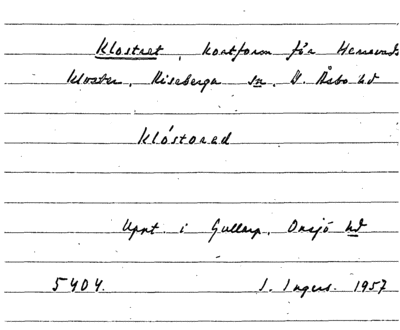 Klostret, kortform för Herrevads
kloster, Riseberga sn, N. Åsbo hd
klóstorəd
Uppt. i Gullarp, Onsjö hd
5404. I. Ingers. 1957